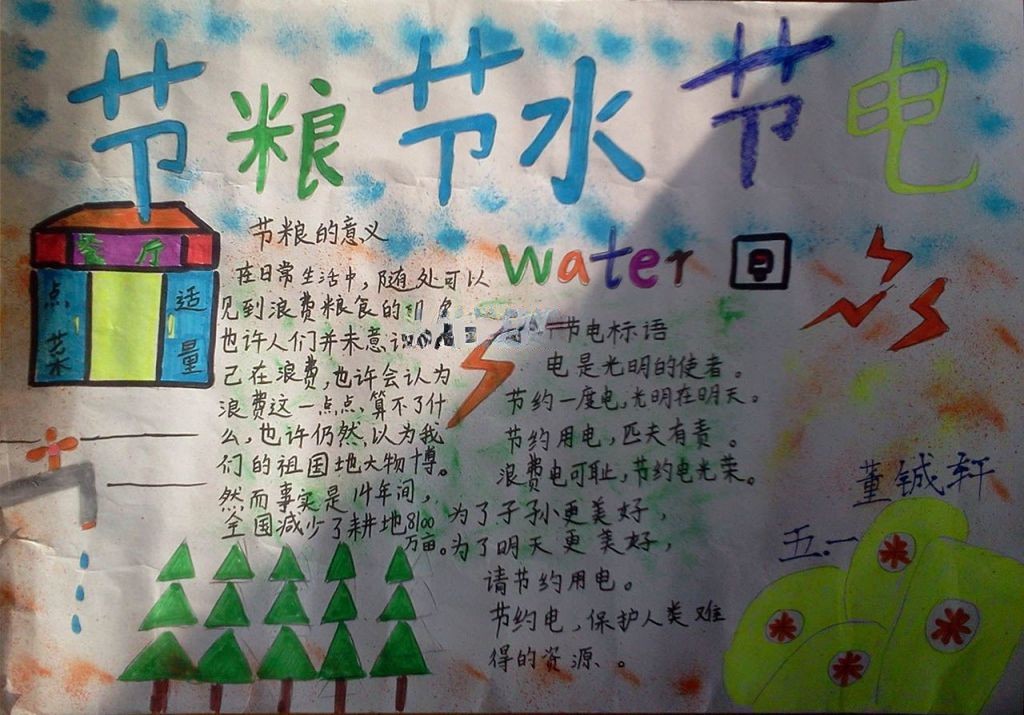 节粮节水节电
餐厅
点菜
适量
节粮的意义
在日常生活中,随处可以
见到浪费粮食的
也许人们并未意识
己在浪费,也许会认为
浪费这一点点,算不了什
么,也许仍然以为我
们的祖国地大物博。
然而事实是14年间,
全国减少了耕地8100
万亩。
water
节电标语
电是光明的使者。
节约一度电,光明在明天。
节约用电,匹夫有责。
浪费电可耻,节约电光荣。
为了子孙更美好,
为了明天更美好,
请节约用电。
节约电,保护人类难
得的资源。
董铖轩
五.一
米
米
米
米